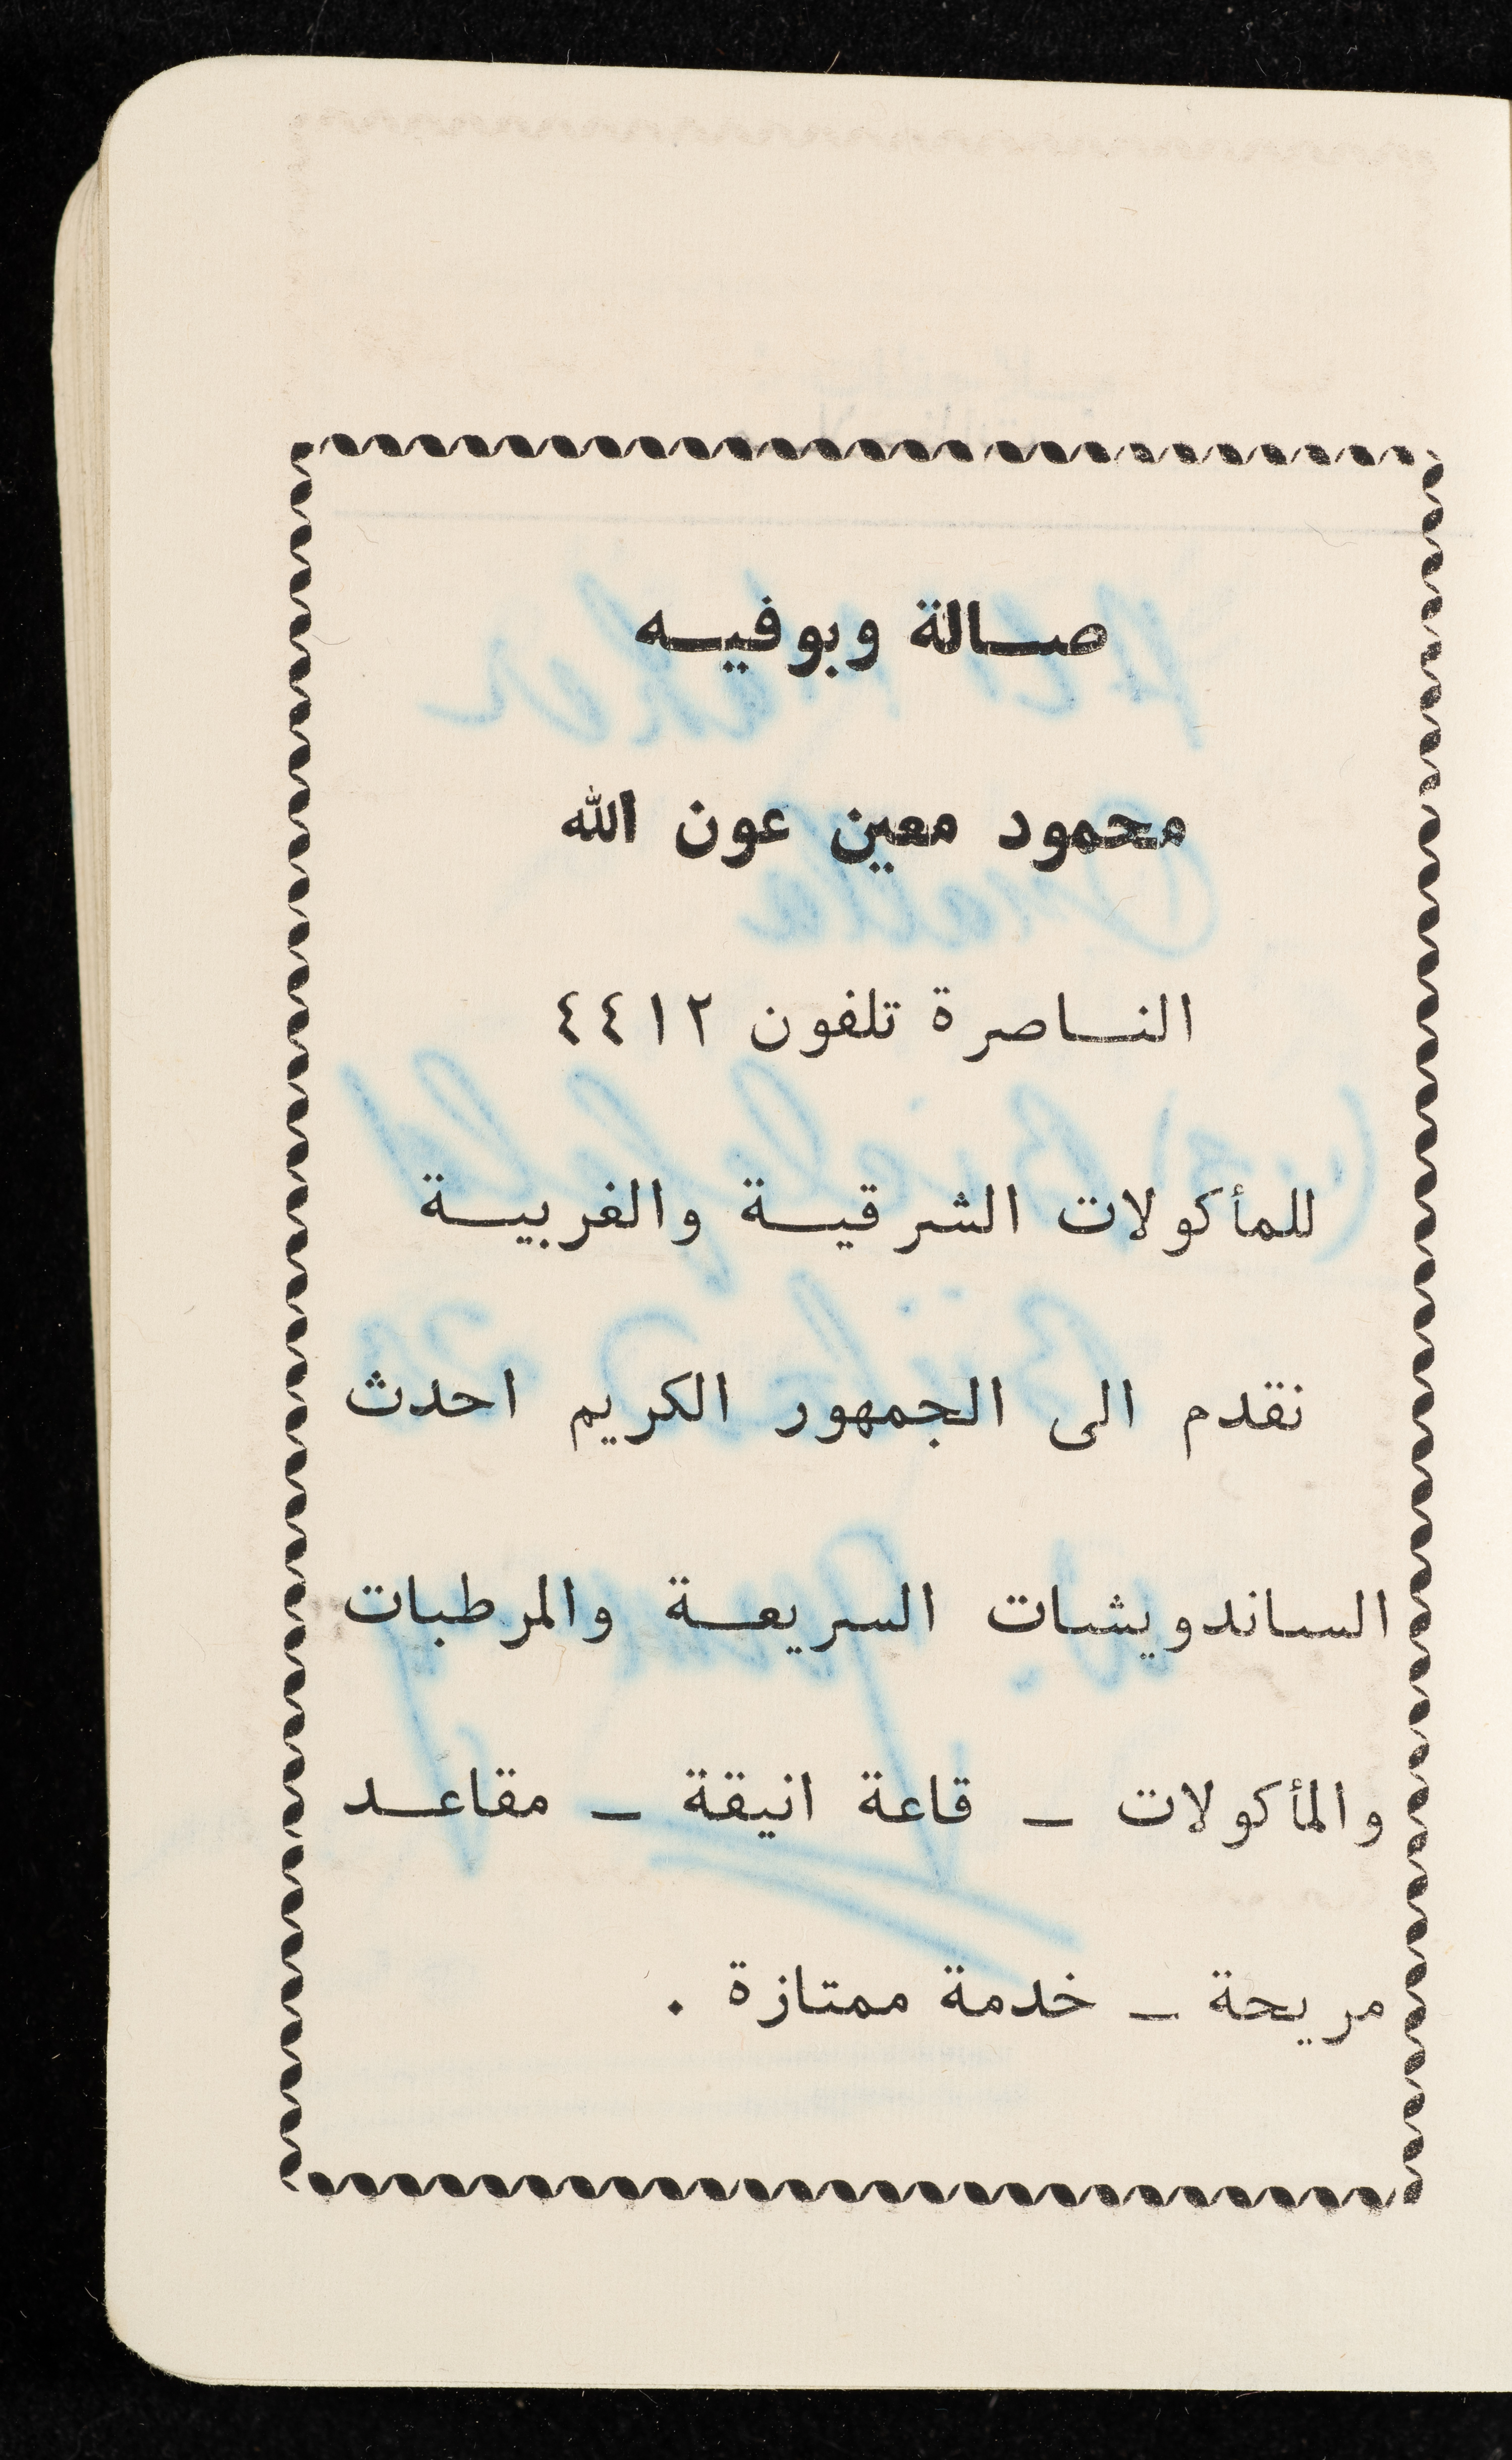 صالة وبوفيه
محمود معين عون الله
الناصرة تلفون ٤٤١٢
للمأكولات الشرقية والغربية
نقدم الى الجمهور الكريم احدث
الساندويشات السريعة والمرطبات
والمأكولات ــ قاعة انيقة ــ مقاعد
مريحة ــ خدمة ممتازة .